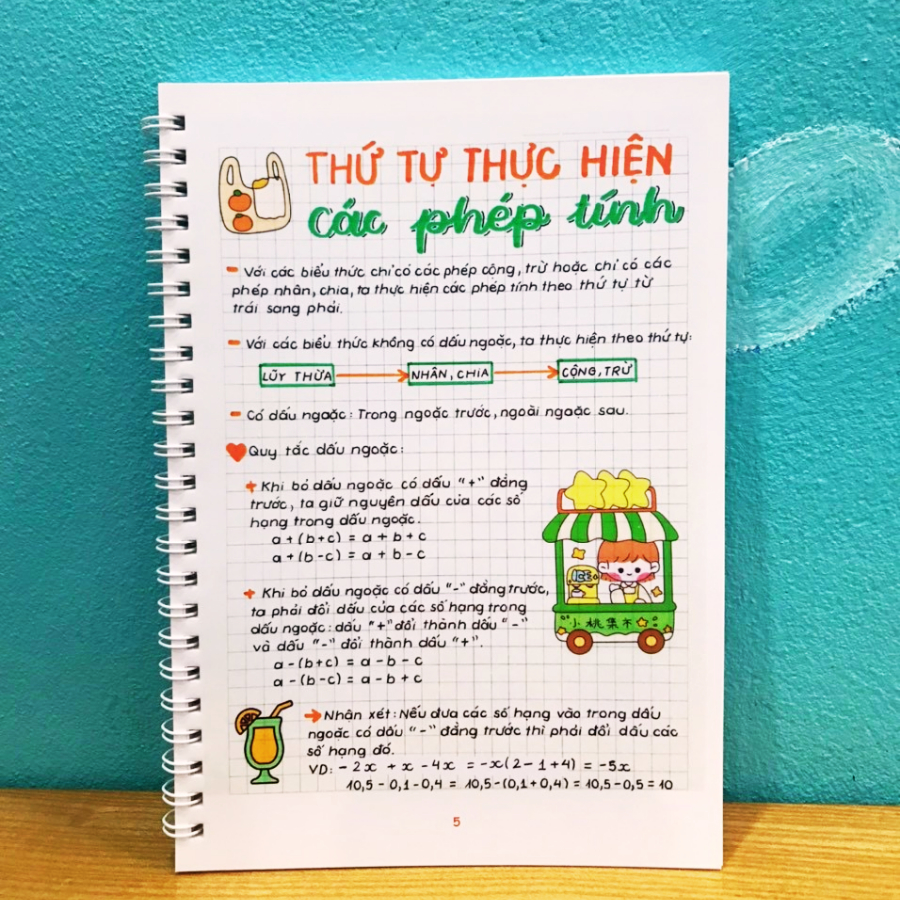 THỨ TỰ THỰC HIỆN
các phép tính
- Với các biểu thức chỉ có các phép cộng, trừ hoặc chỉ có các
phép nhân, chia, ta thực hiện các phép tính theo thứ tự từ
trái sang phải.
- Với các biểu thức không có dấu ngoặc, ta thực hiện theo thứ tự:
LŨY THỪA → NHÂN, CHIA → CỘNG, TRỪ
- Có dấu ngoặc: Trong ngoặc trước, ngoài ngoặc sau.
Quy tắc dấu ngoặc:
+ Khi bỏ dấu ngoặc có dấu "+" đằng
trước, ta giữ nguyên dấu của các số
hạng trong dấu ngoặc.
a + (b+c) = a + b + c
a + (b-c) = a + b - c
+ Khi bỏ dấu ngoặc có dấu "-" đằng trước,
ta phải đổi dấu của các số hạng trong
dấu ngoặc: dấu "+" đổi thành dấu "-"
và dấu "-" đổi thành dấu "+".
a - (b+c) = a - b - c
a - (b-c) = a - b + c
ICE
小桃集不
→ Nhân xét: Nếu đưa các số hạng vào trong dấu
ngoặc có dấu "-" đằng trước thì phải đổi dấu các
số hạng đó.
VD: - 2x + x - 4x = -x(2 - 1 + 4) = -5x
10,5 - 0,1 - 0,4 = 10,5 - (0,1 + 0,4) = 10,5 - 0,5 = 10
5